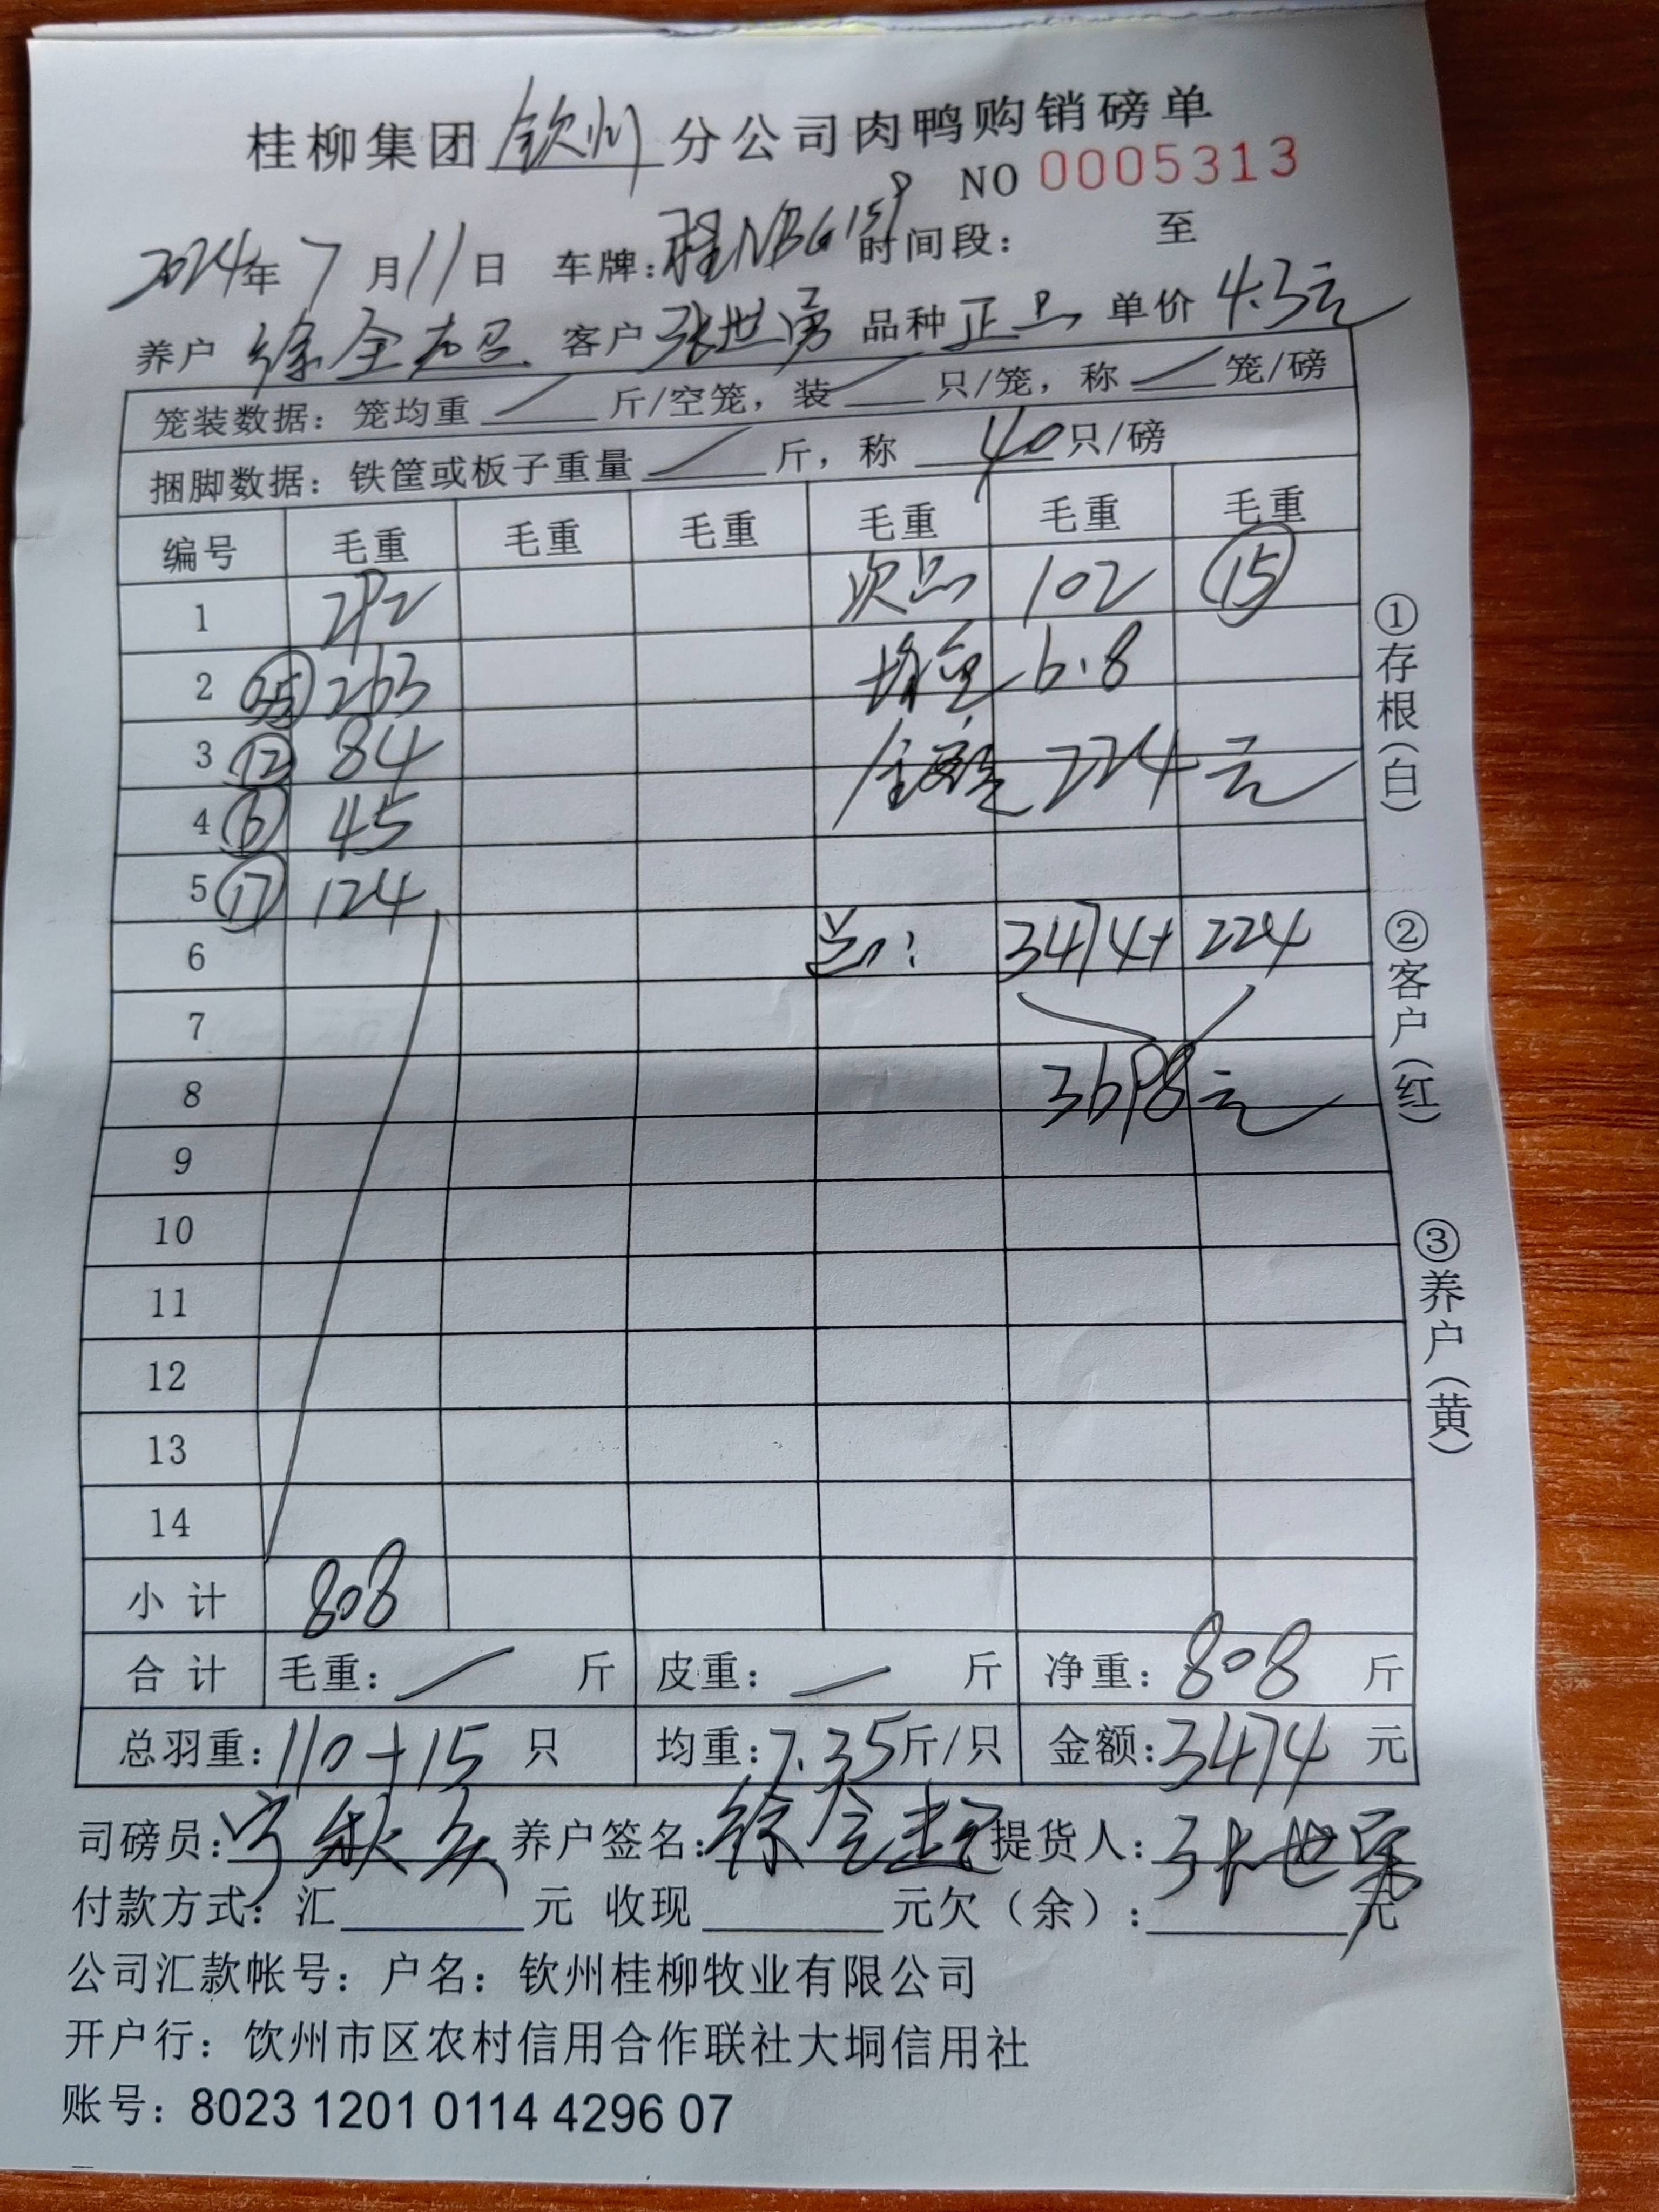 桂柳集团 钦州 分公司肉鸭购销磅单
NO 0005313
2024年 7 月 11 日 车牌: 桂NBG159 时间段: 至
养户 徐全超 客户 张世勇 品种 正品 单价 4.3元
笼装数据: 笼均重 / 斤/空笼, 装 / 只/笼, 称 / 笼/磅
捆脚数据: 铁筐或板子重量 / 斤, 称 40 只/磅
编号 毛重 毛重 毛重 毛重 毛重 毛重
1 292 次品 102 ⑮
2 ㉟ 263 均重 6.8
3 ⑫ 84 金额 224元
4 ⑥ 45
5 ⑰ 124
6 总: 3474+224
7
8 3698元
9
10
11
12
13
14
小计 808
合计 毛重: / 斤 皮重: / 斤 净重: 808 斤
总羽重: 110+15 只 均重: 7.35 斤/只 金额: 3474 元
司磅员: 宁秋 养户签名: 徐全超 提货人: 张世勇
付款方式: 汇 元 收现 元欠(余): 元
公司汇款帐号: 户名: 钦州桂柳牧业有限公司
开户行: 钦州市区农村信用合作联社大垌信用社
账号: 8023 1201 0114 4296 07
①存根(白)
②客户(红)
③养户(黄)